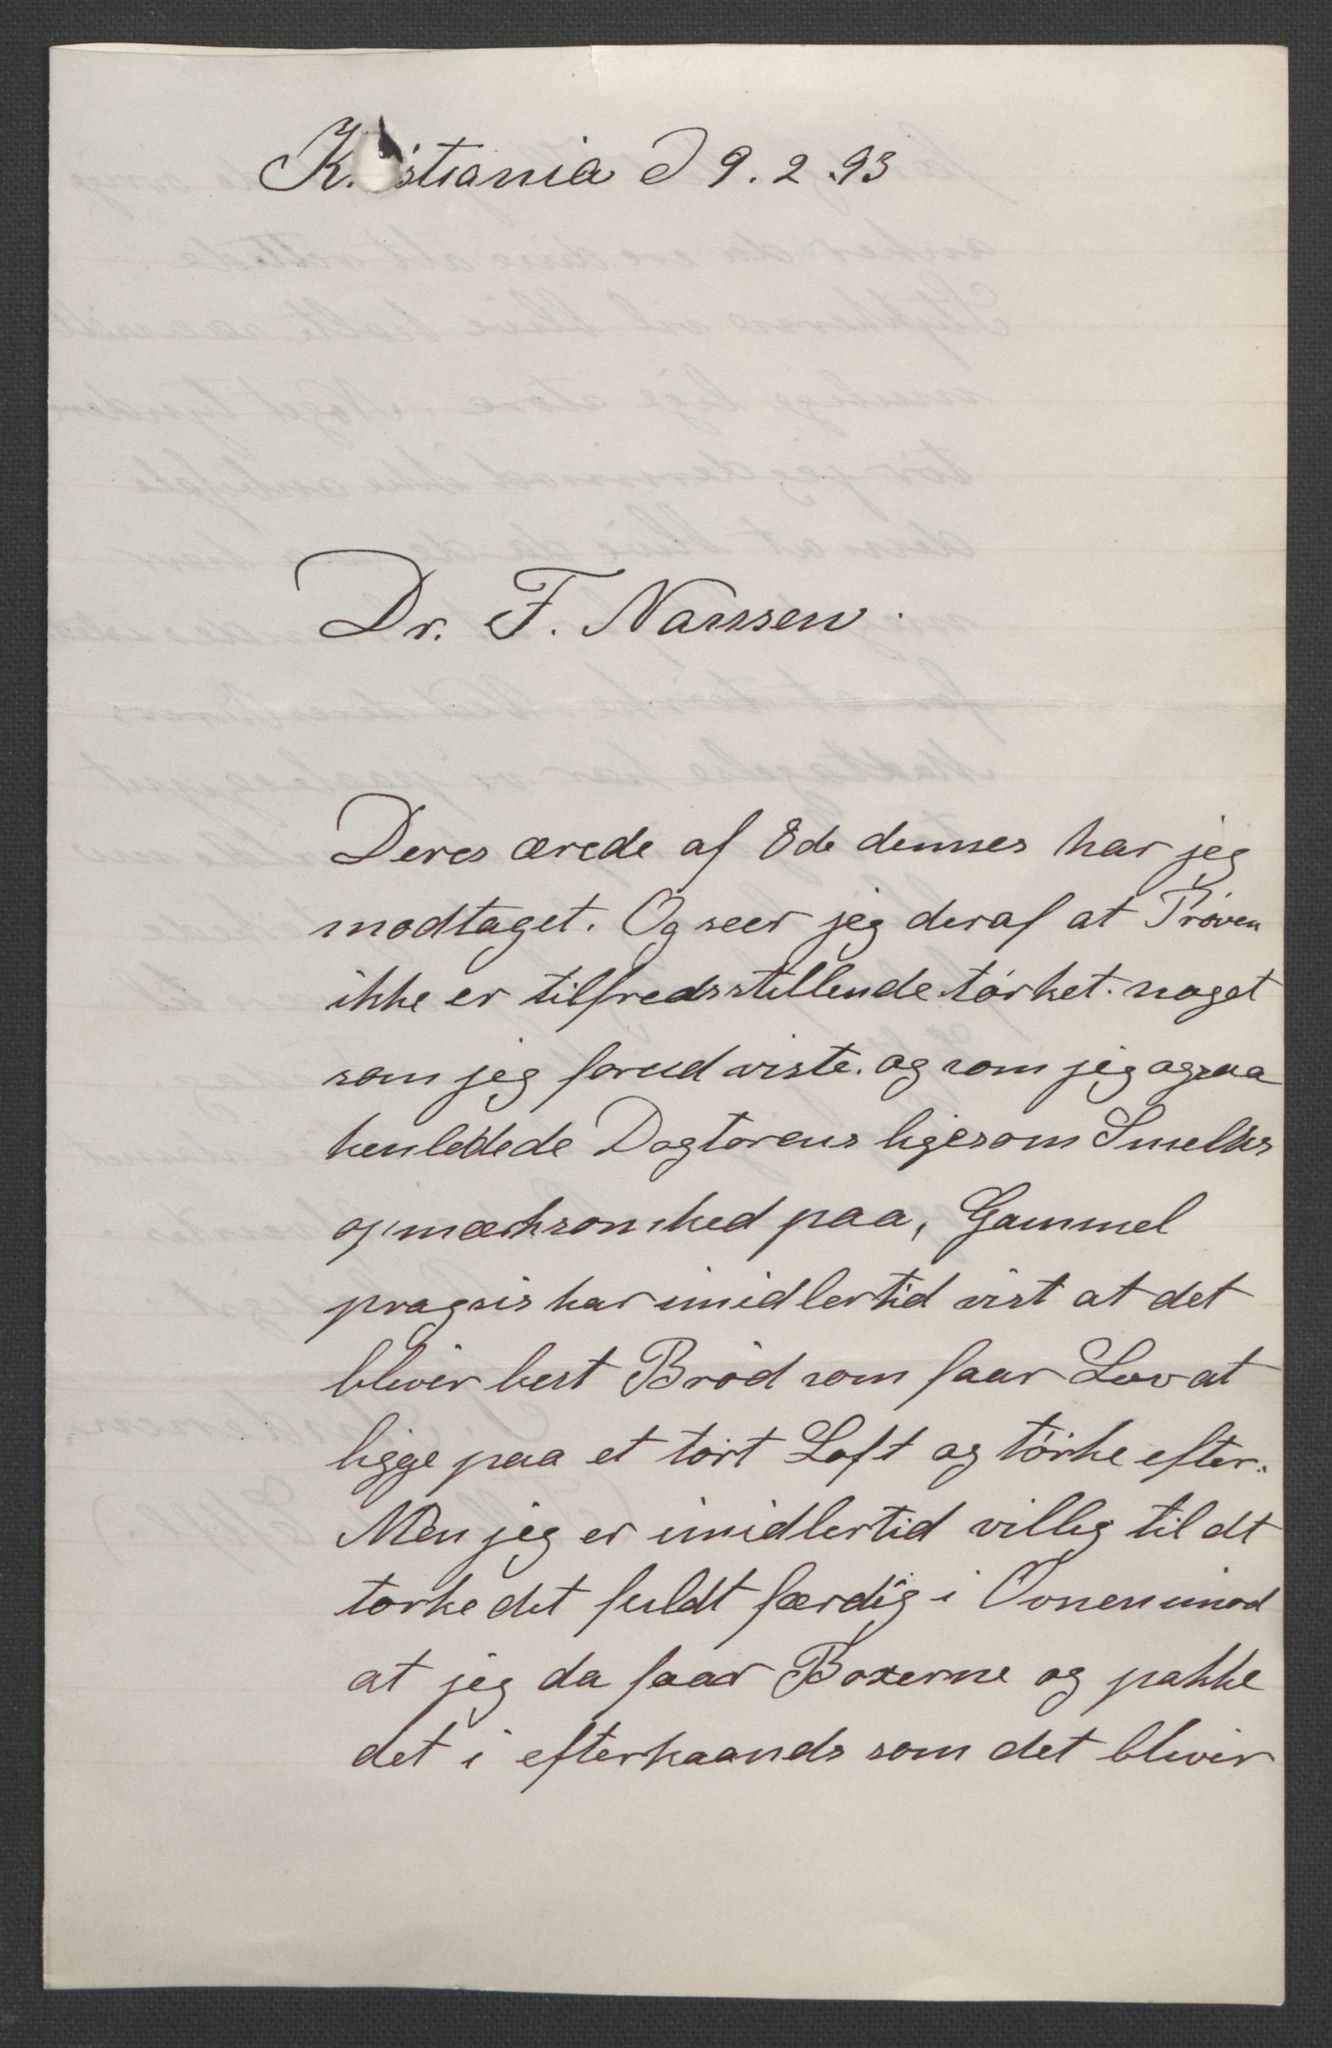 Kristiania d 9. 2. 93
Dr. F. Nanssen.
Deres ærede af 8de dennes har jeg
modtaget. Og seer jeg deraf at Prøven
ikke er tilfredsstillende tørket. noget
som jeg forud viste. og som jeg ogsaa
henledede Dogtorens ligesom
opmærksomhed paa, Gammel
pragsis har imidlertid vist at det
blivir best Brød som faar Lov at
ligge paa et tørt Loft og tørke efter.
Men jeg er imidlertid villig til at
tørke det fuldt færdig i Ovnen imod
at jeg da faar Boxerne og pakke
det i efterhaands som det blivir